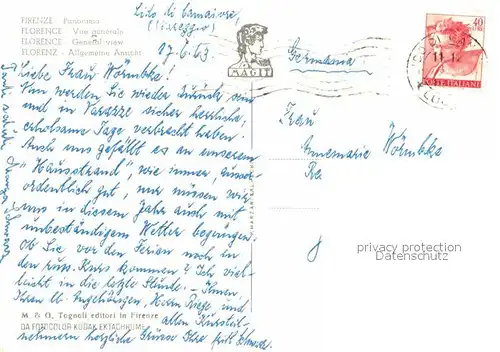 FIRENZE - Panorama
FLORENCE - Vue générale
FLORENCE - General view
FLORENZ - Allgemeine Ansicht
Lido di Camaiore
(Viareggio)
17.6.63
Liebe Frau Wörmbke!
Nun werden Sie wieder zurück sein
und in Varazze sicher herrliche,
erholsame Tage verbracht haben.
Auch uns gefällt es an unserem
"Hausstrand", wie immer, ausser-
ordentlich gut, nur müssen wir
uns in diesem Jahr auch mit
unbeständigem Wetter begnügen.
Ob Sie vor den Ferien noch in
den russ. Kurs kommen? Ich viel-
leicht in die letzte Stunde. - Ihnen,
Ihren lb. Angehörigen, Herrn Riege und
allen Kursteil-
nehmern herzliche Grüsse Ihre
M & O, Tognoli editori in Firenze
DA FOTOCOLOR KODAK EKTACHROME
MAGIT
40
POSTE ITALIANE
Germania
Frau
Annemarie Wörmbke
privacy protection